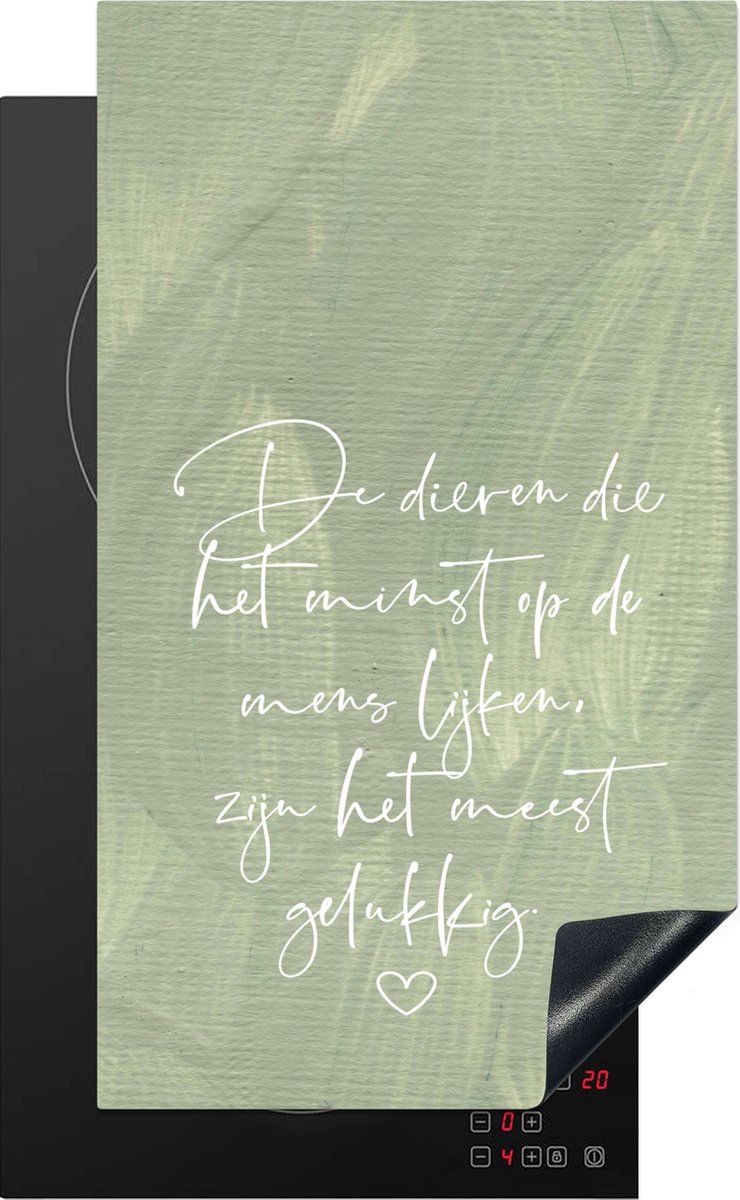 De dieren die
het minst op de
mens lijken,
zijn het meest
gelukkig.
20
0
4